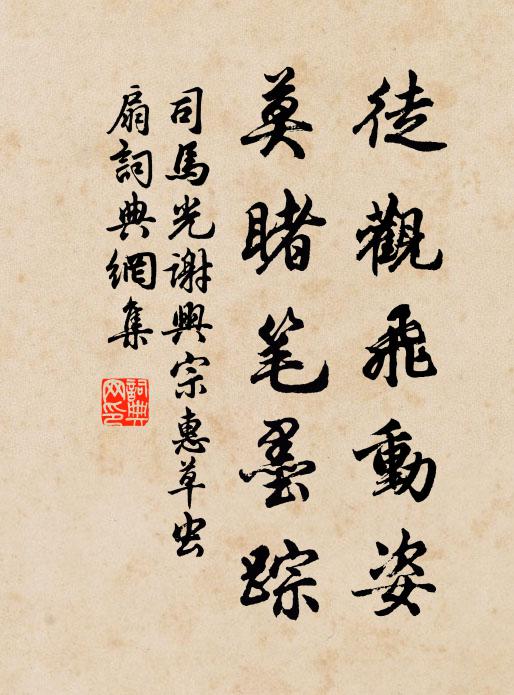 徒觀飛動姿
莫睹笔墨踪
司馬光謝興宗惠草虫
扇詞典網集
詞典网印